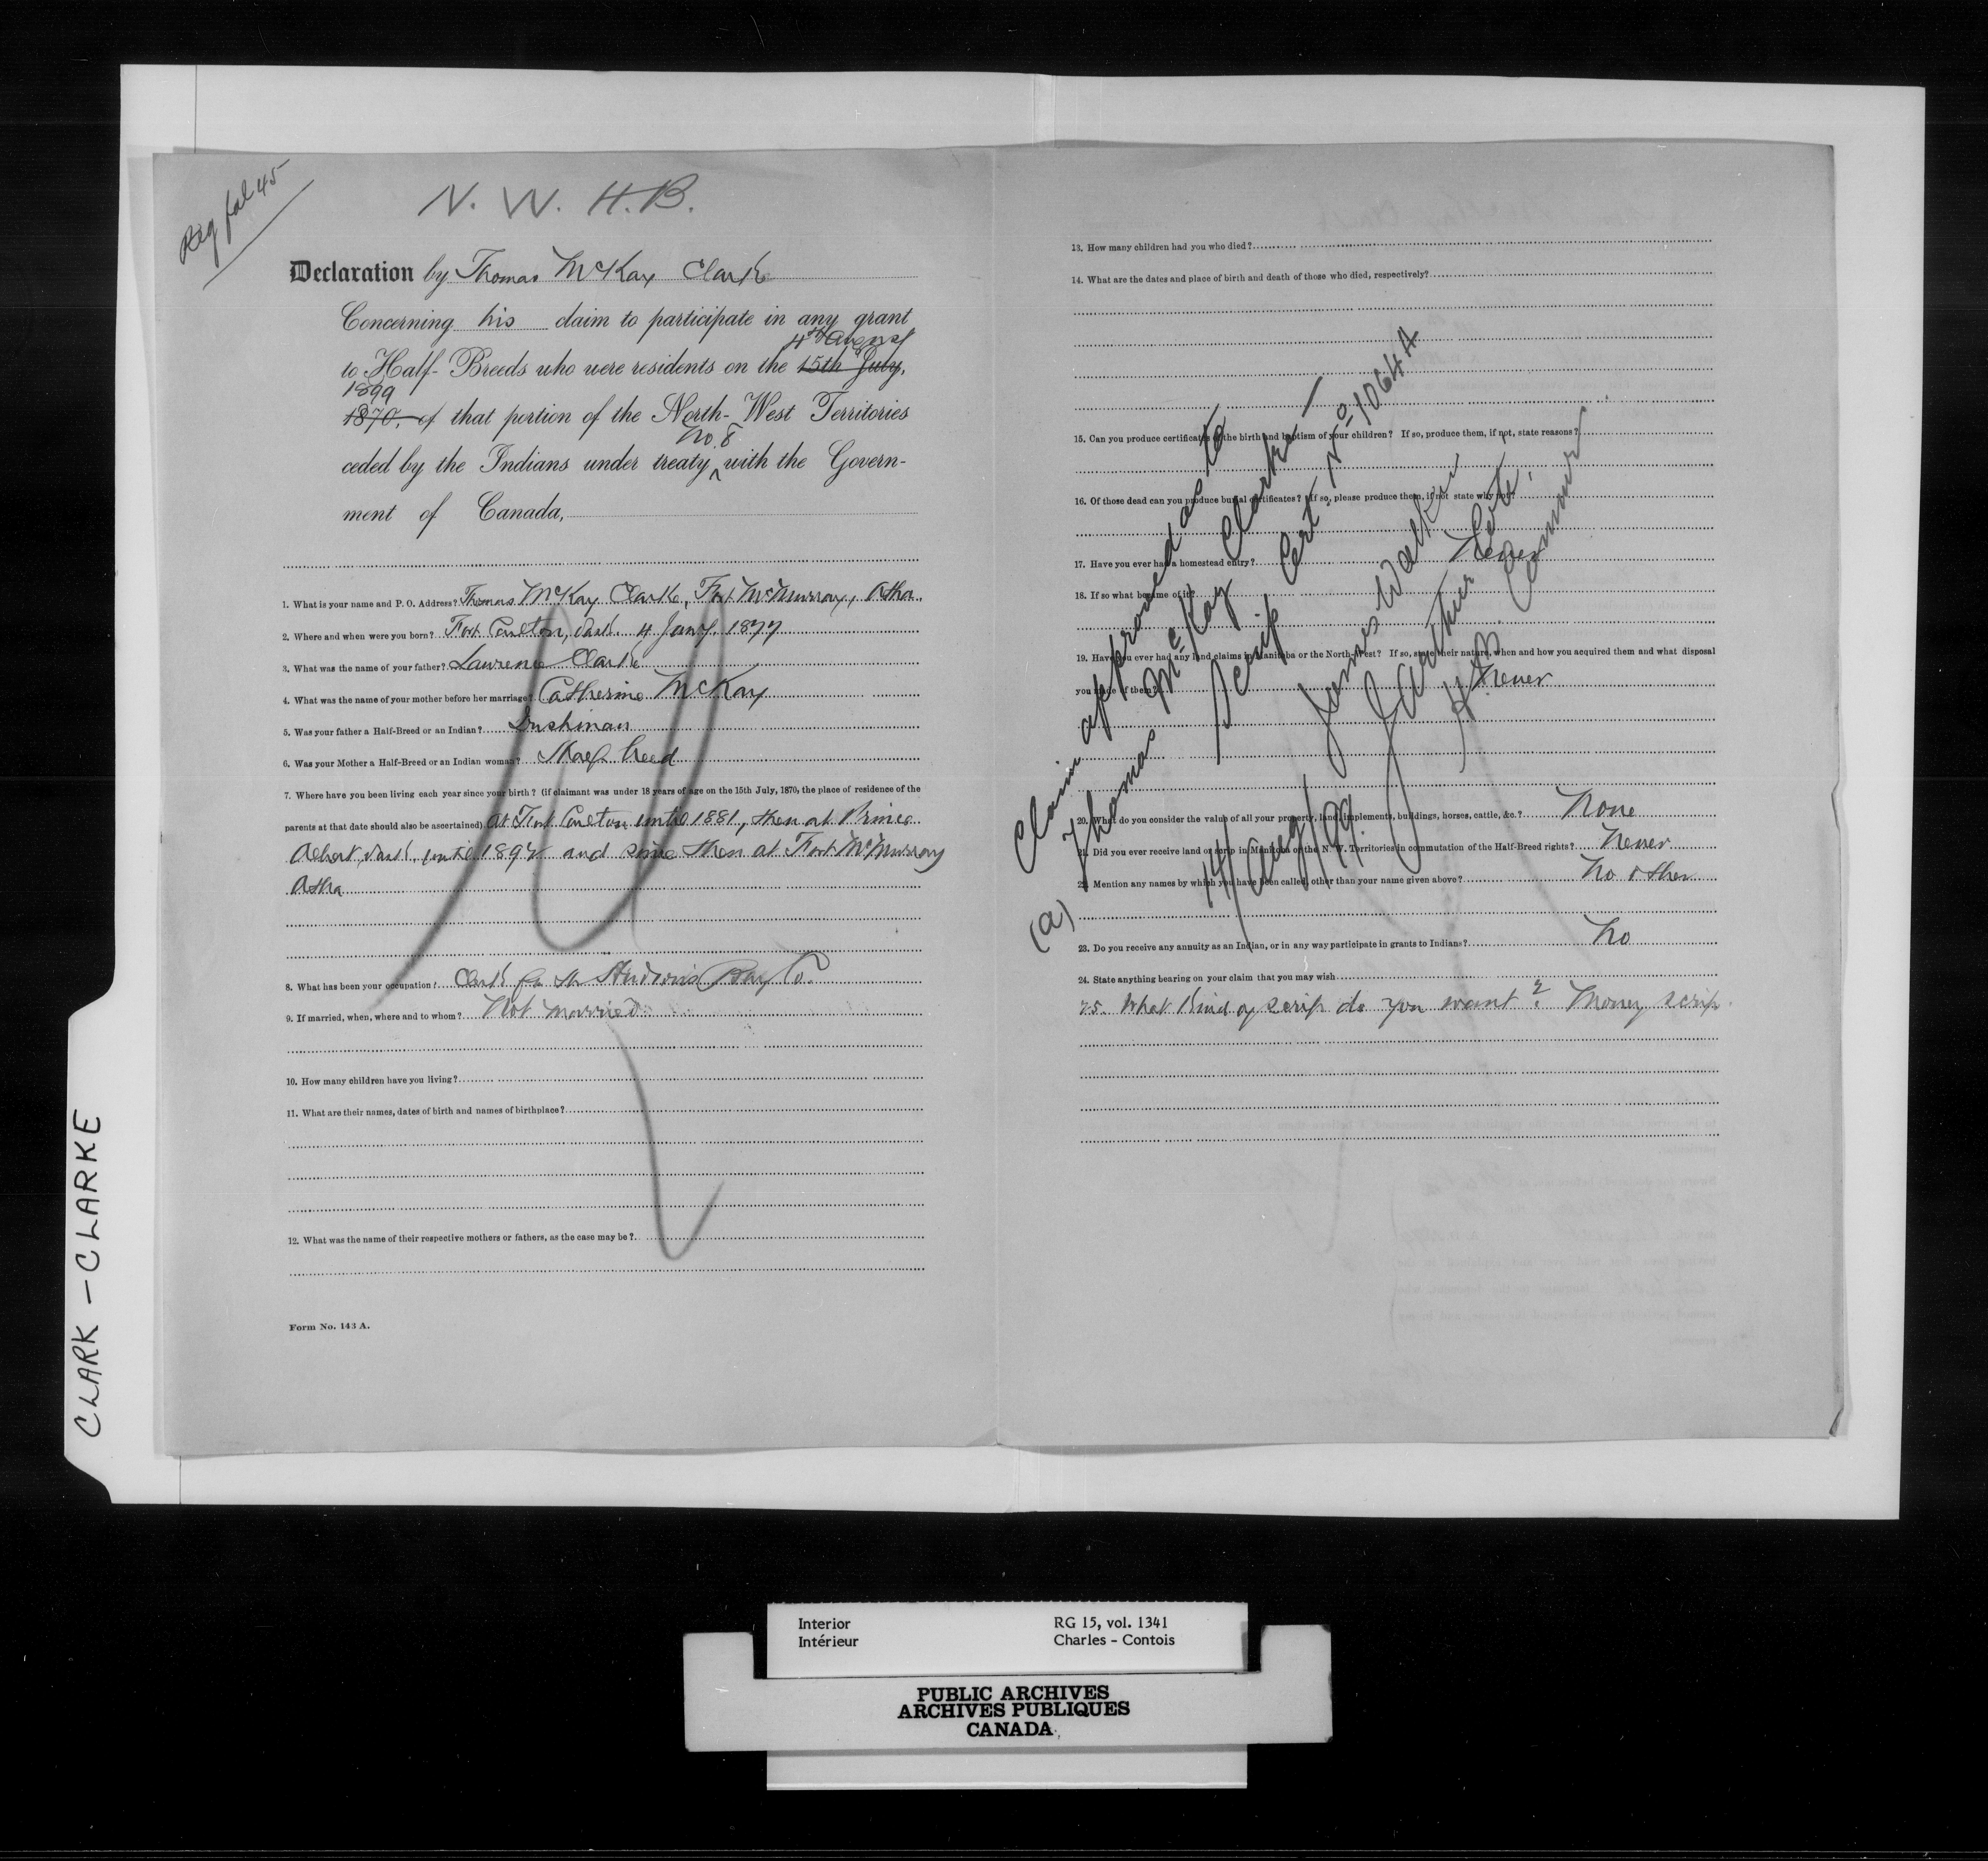 Reg fol 45
N. W. H. B.
Declaration by Thomas McKay Clark
Concerning his claim to participate in any grant
4th August
to Half-Breeds who were residents on the 15th July,
1899
1870, of that portion of the North-West Territories
No. 8
ceded by the Indians under treaty ^ with the Govern-
ment of Canada,
1. What is your name and P. O. Address? Thomas McKay Clarke, Fort McMurray, Atha.
2. Where and when were you born? Fort Carlton, Sask. 4 Jany. 1877
3. What was the name of your father? Lawrence Clarke
4. What was the name of your mother before her marriage? Catherine McKay
5. Was your father a Half-Breed or an Indian? Irishman
6. Was your Mother a Half-Breed or an Indian woman? Half breed
7. Where have you been living each year since your birth? (if claimant was under 18 years of age on the 15th July, 1870, the place of residence of the
parents at that date should also be ascertained) At Fort Carlton until 1881, then at Prince
Albert, Sask. until 1892 and since then at Fort McMurray
Atha
8. What has been your occupation? Clerk for the Hudson's Bay Co.
9. If married, when, where and to whom? Not married
10. How many children have you living?
11. What are their names, dates of birth and names of birthplace?
12. What was the name of their respective mothers or fathers, as the case may be?
Form No. 143 A.
13. How many children had you who died?
14. What are the dates and place of birth and death of those who died, respectively?
15. Can you produce certificates of the birth and baptism of your children? If so, produce them, if not, state reasons?
16. Of those dead can you produce burial certificates? If so, please produce them, if not state why not?
17. Have you ever had a homestead entry? Never
18. If so what became of it?
19. Have you ever had any land claims in Manitoba or the North-West? If so, state their nature, when and how you acquired them and what disposal
you made of them? Never
20. What do you consider the value of all your property, land, implements, buildings, horses, cattle, &c.? None
21. Did you ever receive land or scrip in Manitoba or the N. W. Territories in commutation of the Half-Breed rights? Never
22. Mention any names by which you have been called, other than your name given above? No other
23. Do you receive any annuity as an Indian, or in any way participate in grants to Indians? No
24. State anything bearing on your claim that you may wish
25. What kind of scrip do you want? Money scrip.
(a)
Claim approved as to
Thomas McKay Clarke —
Scrip Cert. No 1064 A
James Walker
J. Arthur Cote,
H. B. Commrs.
14/Aug/99.
CLARK - CLARKE
Interior
Intérieur
RG 15, vol. 1341
Charles - Contois
PUBLIC ARCHIVES
ARCHIVES PUBLIQUES
CANADA